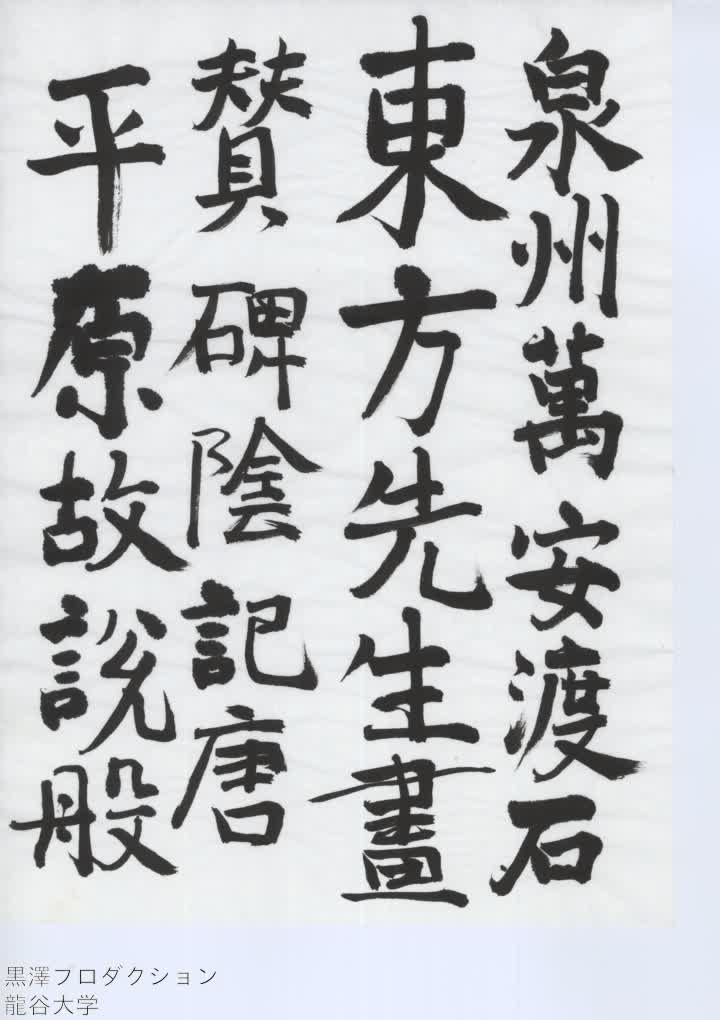 泉州萬安渡石
東方先生畫
賛碑陰記唐
平原故説般
黒澤プロダクション
龍谷大学